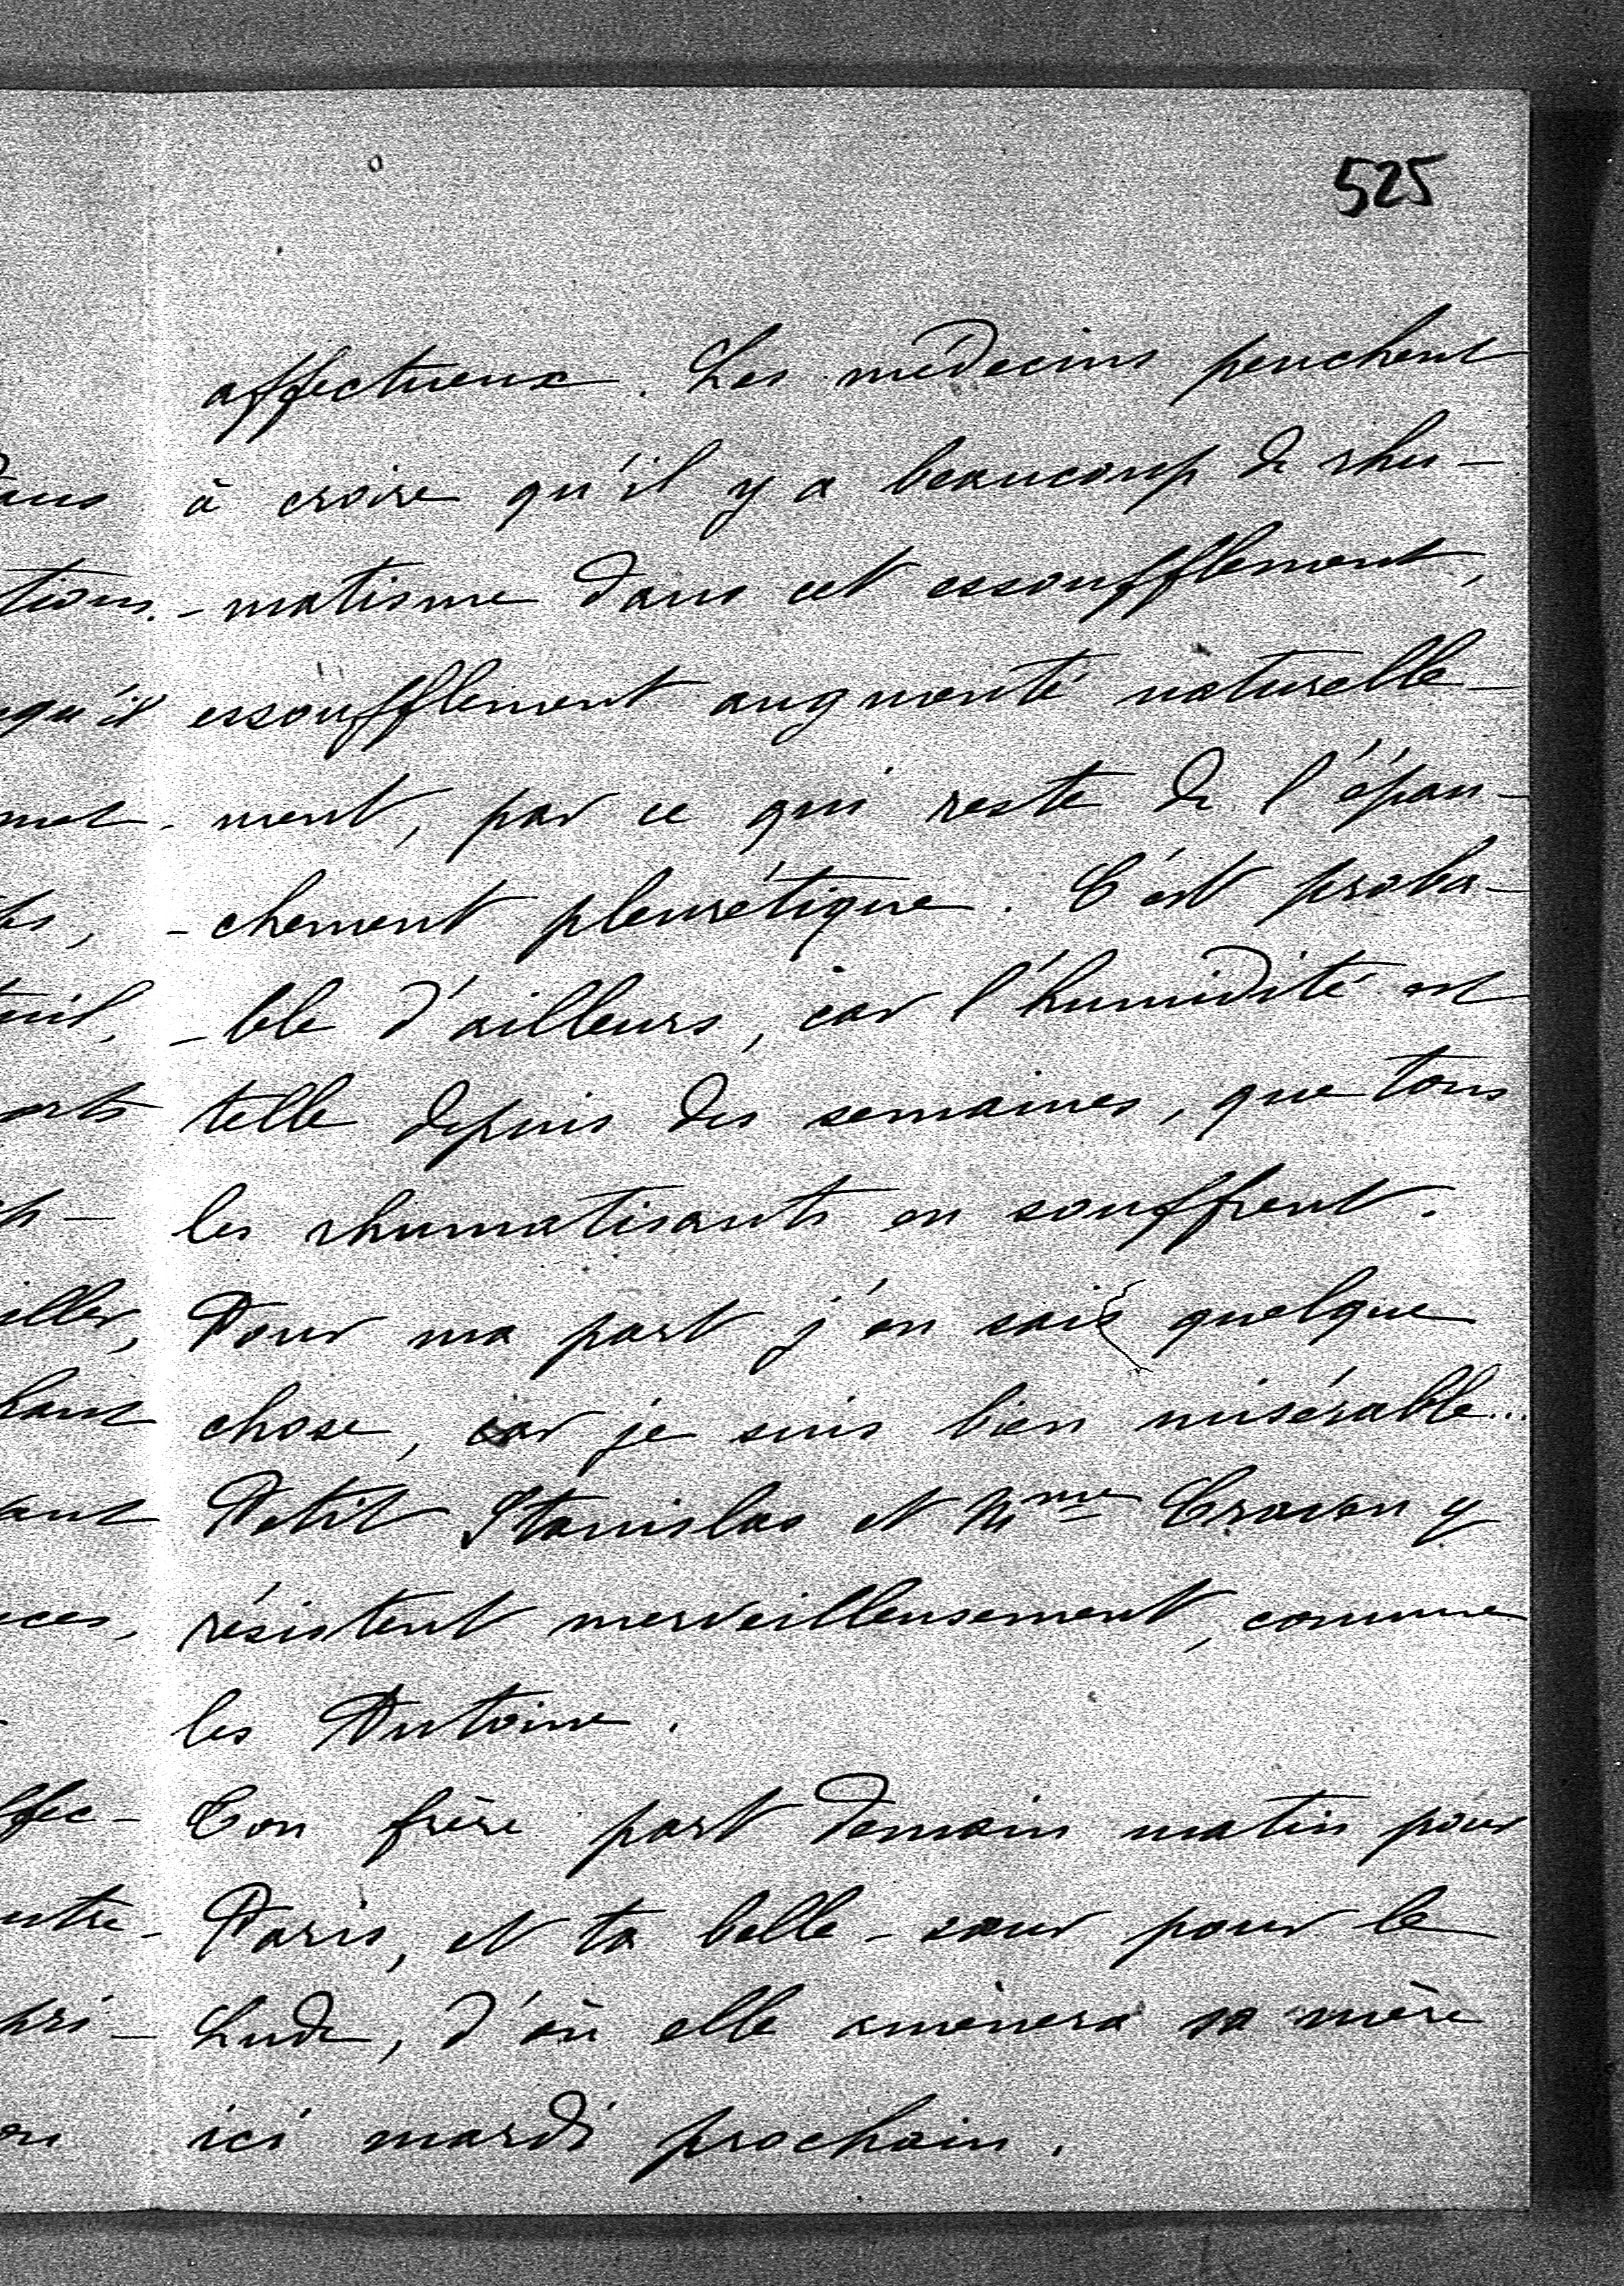 525
affectueux. Les médecins penchent
à croire qu'il y a beaucoup de rhu-
-matisme dans cet essoufflement,
essoufflement augmenté naturelle-
ment, par ce qui reste de l'épan-
-chement pleurétique. C'est proba-
-ble d'ailleurs, car l'humidité est
telle depuis des semaines, que tous
les rhumatisants en souffrent.
Pour ma part j'en sais quelque
chose, car je suis bien misérable...
Petit Stanislas et Mme Craven y
résistent merveilleusement, comme
les Antoine.
Ton frère part demain matin pour
Paris, et ta belle-sœur pour le
Lude, d'où elle amènera sa mère
ici mardi prochain.